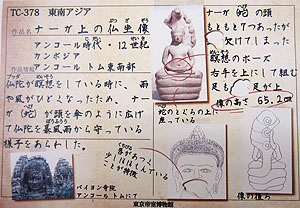 TC-378 東南アジア
作品名 ナーガ上の仏坐像
アンコール時代・12世紀
カンボジア
アンコール トム東南部
仏陀が瞑想をしている時に、雨
や風がひどくなったため、ナー
ガ(蛇)が頭を傘のように広げ
て仏陀を暴風雨から守っている
様子をあらわした。
ナーガ(蛇)の頭
もともと7つあったが
欠けてしまった
瞑想のポーズ
右手を上にして組む
足も 足が上
像の高さ 65.2㎝
蛇のとぐろの上に
座っている
唇があつく
少しほほえんでいる
ことが特徴
バイヨン寺院
アンコール トムにて
像の後ろ
東京帝室博物館